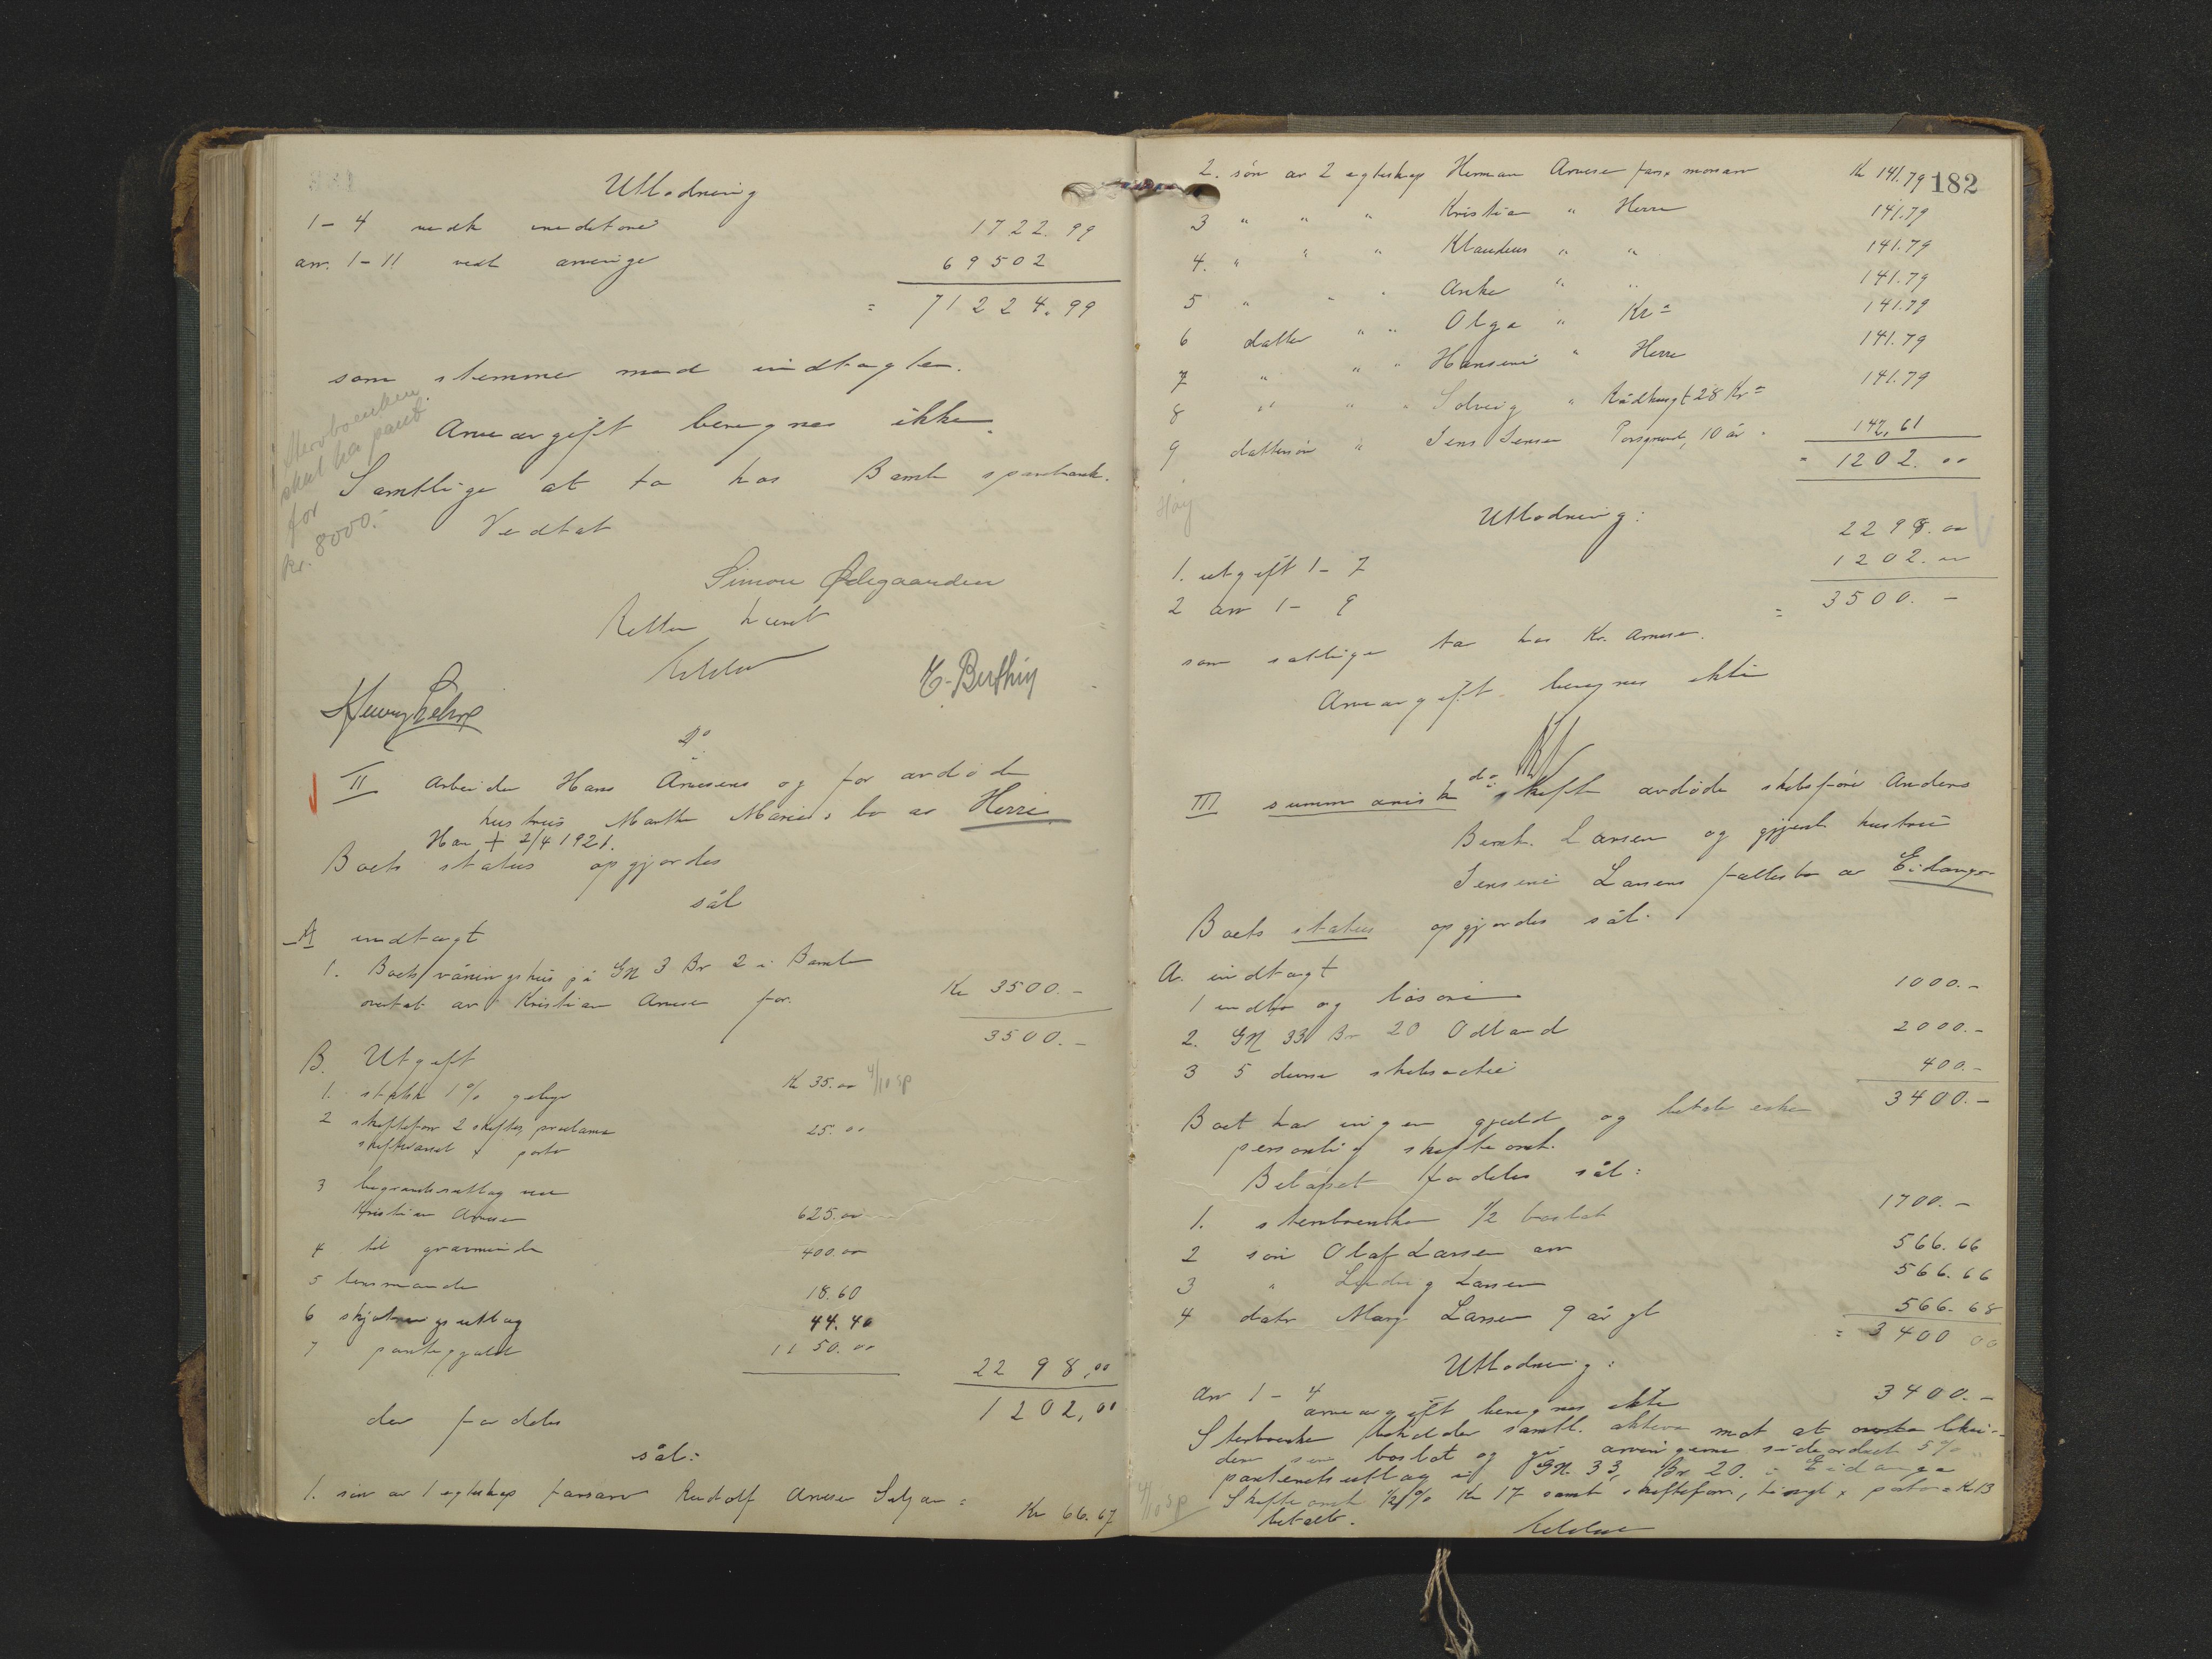 Utlodning
1-4 vedk kreditorer 1722.99
arv. 1-11 vedk arvinge 69502
= 71224.99
som stemmer med indtægten.
Arveavgift beregnes ikke.
skal ha pant
for
kr. 8000.-
Samtlige at ta hos Bamble sparebank.
Vedtat
Simon Ødegaarden
Retten hævet
II Arbeider Hans Arnesens og før avdøde
hustru Marthe Maries bo av Herre.
Han + 2/4 1921.
Boets status opgjordes
sål
A indtægt
1. Boets våningshus på GN 3 Br 2 i Bamble
overtat av Kristian Arnesen for. Kr 3500.-
3500.-
B. Utgift
1. statsk 1% gebyr Kr 35.00 4/10 SP
2 skifteforr 2 skifter, proclama
skiftevarsel & porto 25.00
3 begravelsesutlæg ved
Kristian Arnesen 625.00
4 til gravminde 400.00
5 lensmanden 18.60
6 skjøtningsutlæg 44.40
7 pantegjæld 1150.00
2298,00
1202,00
der fordeles
sål:
1. søn av 1 egteskap farsarv Rudolf Arnesen Kr 66.67
182
2. søn av 2 egteskap Herman Arnesen fars & morsarv Kr 141.79
3 " " " Kristian " Herre 141.79
4. " " " Klaudius " " 141.79
5 " " " Anker " " 141.79
6 datter " " Olga " Kr.a 141.79
7 " " " Hansine " Herre 141.79
8 " " " Solveig " Rådhusgt 28 Kr.a 141.79
9 dattersøn " Jens Jensen Porsgrund, 10 år 142,61
= 1202.00
Utlodning:
1. utgift 1-7 2298.00
2 arv 1-9 1202.00
= 3500.-
som samtlige tar hos Kr. Arnesen.
Arveavgift beregnes ikke
III summarisk do skifte avdøde skibsfører Anders
Bernt. Larsen og gjenl hustru
Jensine Larsens fællesbo av Eidanger
Boets status opgjordes sål.
A. indtægt
1 indbo og løsøre 1000.-
2. GN 33 Br 20 Odland 2000.-
3 5 diverse skibsactier 400.-
3400.-
Boet har ingen gjæld og betaler enken
personlig skifteomk.
Beløpet fordeles sål:
1. sterboenken 1/2 boslod 1700.-
2 søn Olaf Larsen arv 566.66
3 " Ludvig Larsen 566.66
4 datr Marg. Larsen 9 år gl 566.68
= 3400 00
Utlodning:
Arv 1-4 3400.-
arveavgift beregnes ikke
Sterboenken beholder samtl. aktiver mot at
den sin boslod og gi arvingerne 5%
panteretsutlæg i GN. 33, Br. 20. i Eidanger
Skifteomk 1/2% Kr 17 samt skifteforr, tingl & porto = Kr 13
betalt.
4/10 SP